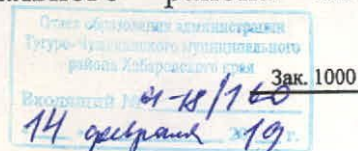 района
Отдел образования администрации
Тугуро-Чумиканского муниципального
района Хабаровского края
Зак. 1000
Входящий № 4-18/160
14 февраля 2019 г.